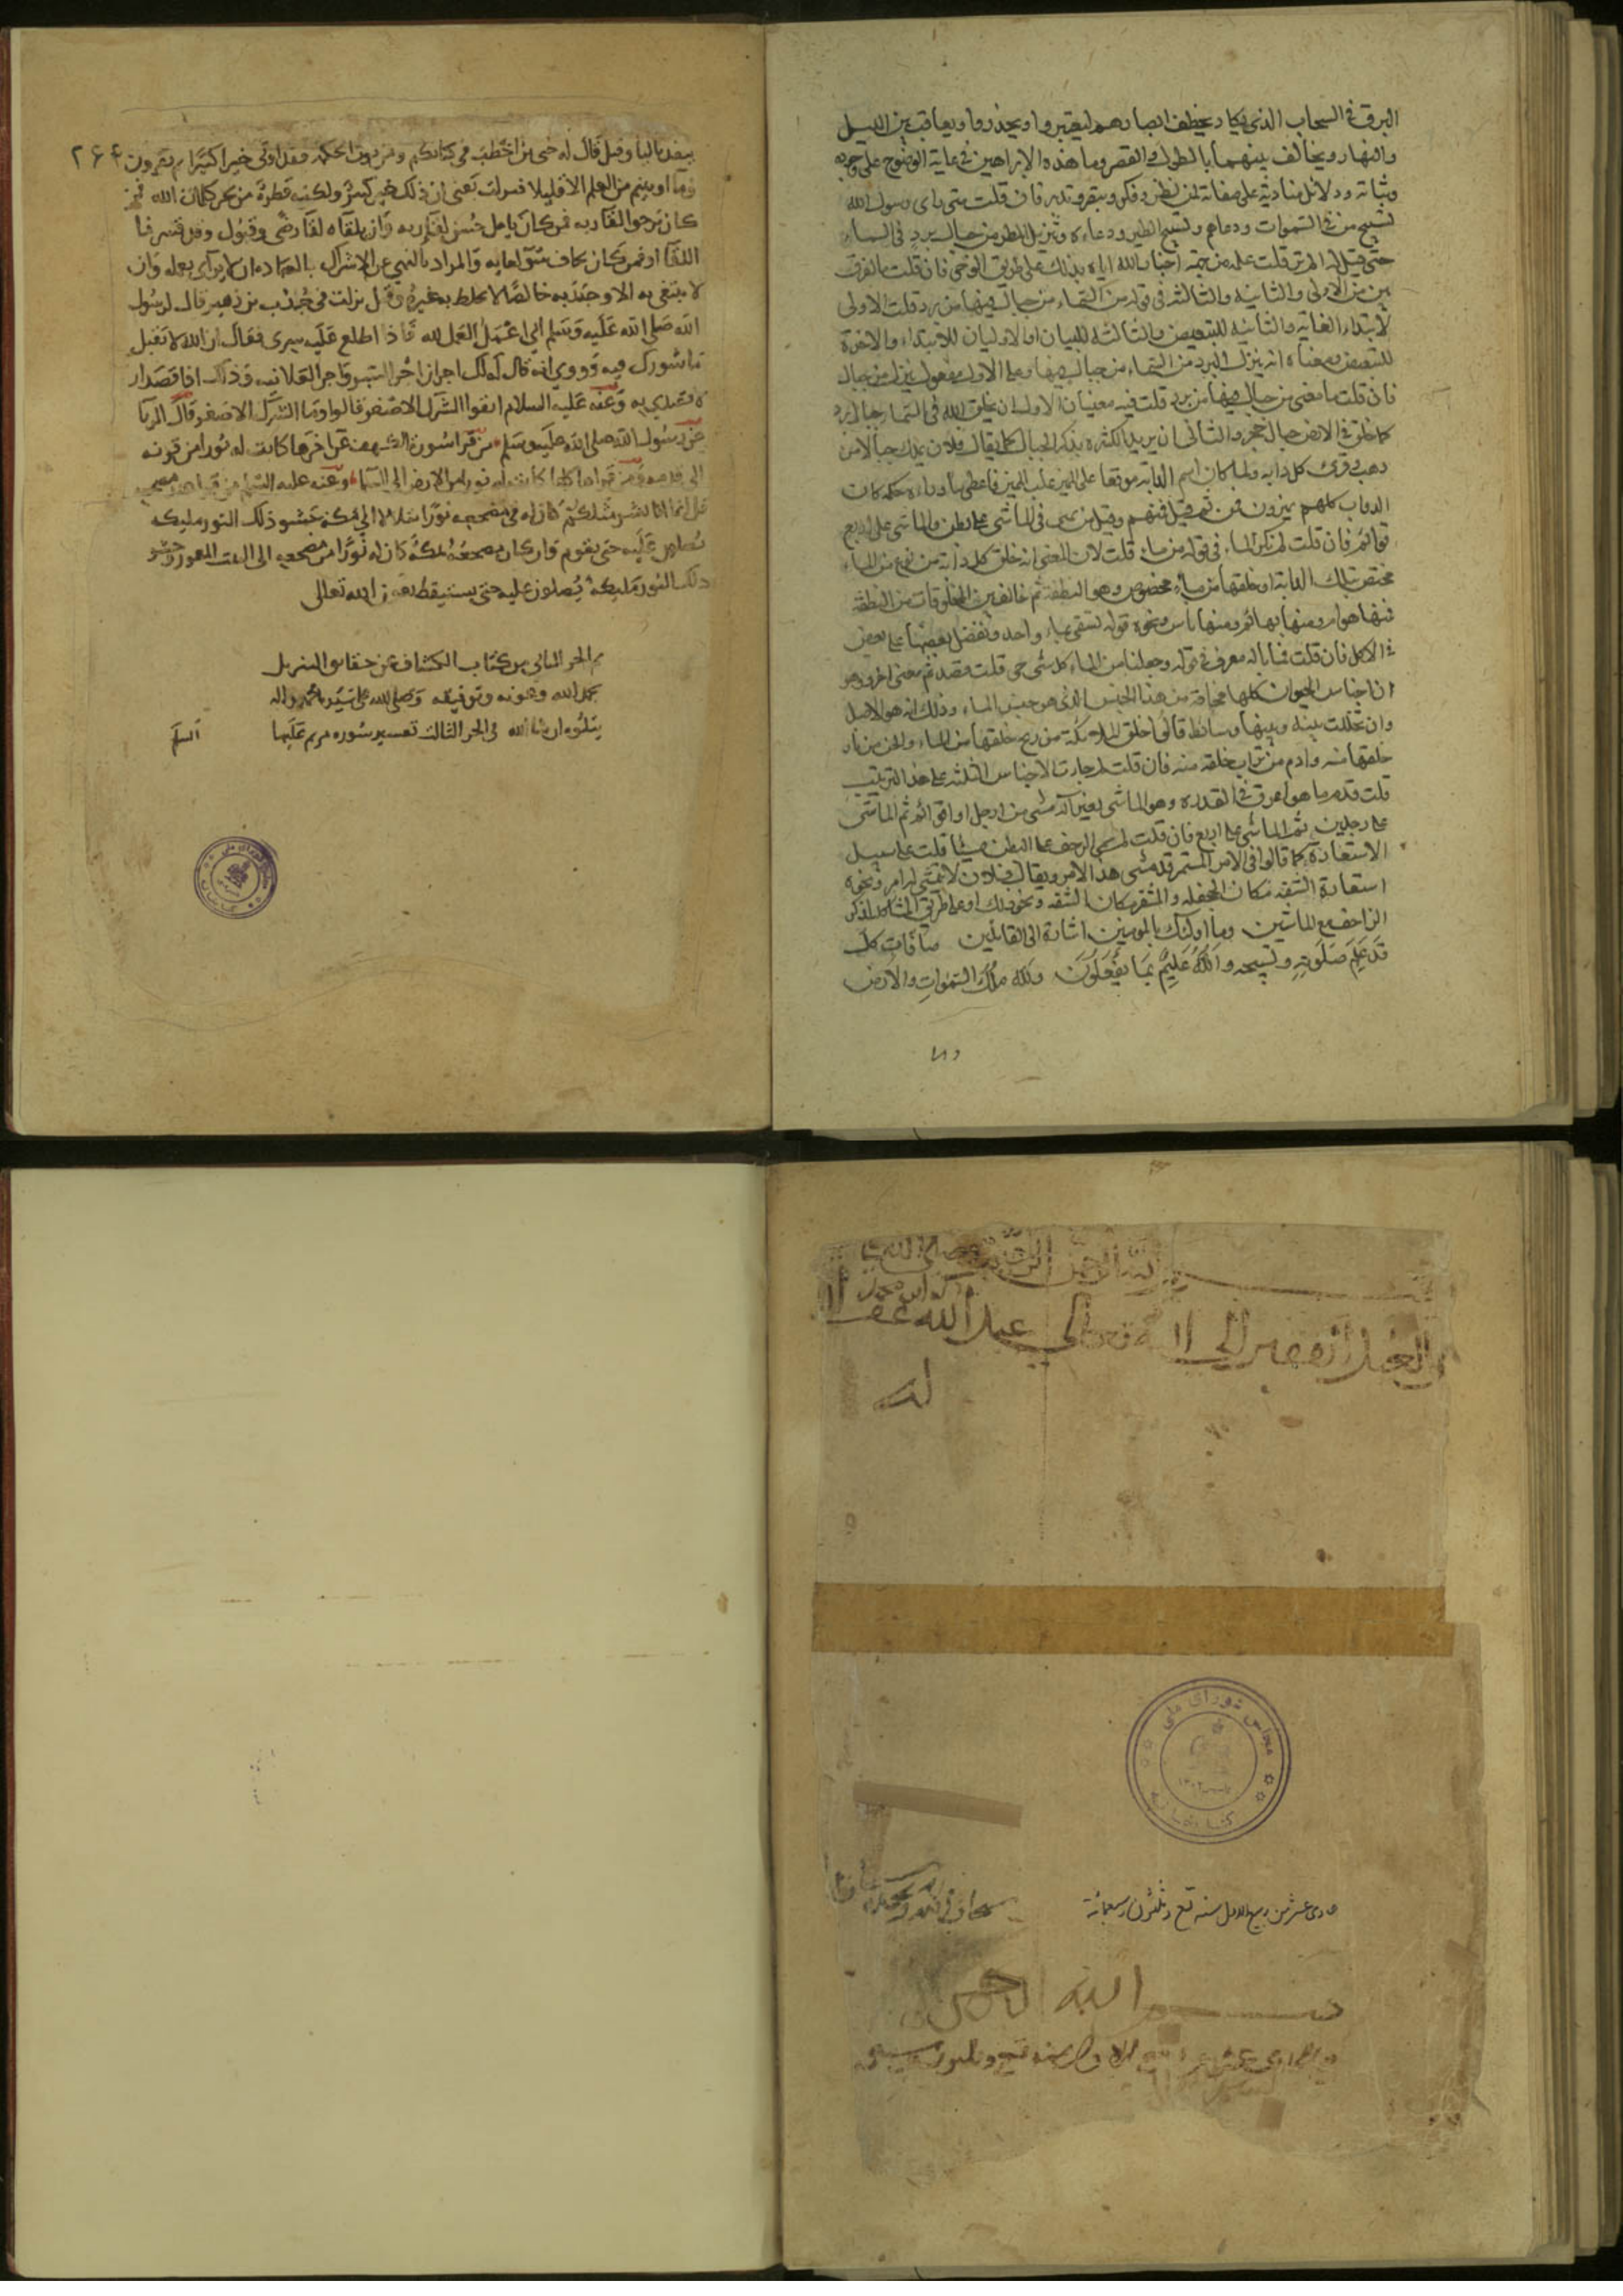 البرق في السحاب الذي يكاد يخطف ابصارهم ليعتبروا ويحذروا ويعاقب بين الليل
والنهار ويخالف بينهما بالطول والقصر وما هذه الا براهين في غاية الوضوح على وجوده
وثباته ودلائل منادية على صفاته لمن نظر وفكر وتبصر وتدبر فان قلت متى رأى رسول الله
تسبيح من في السموات ودعاهم وتسبيح الطير ودعاءه وتنزيل المطر من جبال برد في السماء
حتى قيل له الم تر قلت علمه من جهة اخبار الله اياه بذلك على طريق الوحى فان قلت ما الفرق
بين من الاولى والثانية والثالثة في قوله من السماء من جبال فيها من برد قلت الاولى
لابتداء الغاية والثانية للتبعيض والثالثة للبيان او الاوليان للابتداء والاخرة
للتبعيض ومعناه انه ينزل البرد من السماء من جبال فيها وعلى الاول مفعول ينزل من جبال
فان قلت ما معنى من جبال فيها من برد قلت فيه معنيان الاول ان يخلق الله في السماء جبال برد
كما خلق في الارض جبال حجر والثاني ان يريد الكثرة بذكر الجبال كما يقال فلان يملك جبالا من
ذهب قرئ كل دابة ولما كان اسم الدابة موقعا على المميز غلب المميز فاعطى ما وراءه حكمه كان
الدواب كلهم مميزون فمن ثم قيل فمنهم وقيل من يمشى في الماشى على بطن والماشى على اربع
قوائم فان قلت لم نكر الماء في قوله من ماء قلت لان المعنى انه خلق كل دابة من نوع من الماء
مختص بتلك الدابة او خلقها من ماء مخصوص وهو النطفة ثم خالف بين المخلوقات من النطفة
فمنها هوام ومنها بهائم ومنها ناس ونحوه قوله تسقى بماء واحد ونفضل بعضها على بعض
في الاكل فان قلت فما باله معرفا في قوله وجعلنا من الماء كل شئ حي قلت قصد ثم معنى اخر وهو
ان اجناس الحيوان كلها مخلوقة من هذا الجنس الذي هو جنس الماء وذلك انه هو الاصل
وان تخللت بينه وبينها وسائط قالوا خلق الملائكة من ريح خلقها من الماء والجن من نار
خلقها منه وادم من تراب خلقه منه فان قلت لم جاءت الاجناس الثلثة على هذا الترتيب
قلت قدم ما هو اعرق في القدرة وهو الماشى بغير آلة مشى من ارجل او قوائم ثم الماشى
على رجلين ثم الماشى على اربع فان قلت لم سمى الزحف على البطن مشيا قلت على سبيل
الاستعارة كما قالوا في الامر المستمر قد مشى هذا الامر ويقال فلان لا يتمشى له امر ونحوه
استعارة الشفة مكان الجحفلة والمشفر مكان الشفة ونحو ذلك او على طريق المشاكلة لذكر
الزاحف مع الماشين وما اولئك بالمومنين اشارة الى القائلين صافات كل
قد علم صلوته وتسبيحه والله عليم بما يفعلون ولله ملك السموات والارض
٢۶۴
ينفد بالياء وقيل قال له حيى بن اخطب في كتابكم ومن يوت الحكمة فقد اوتى خيرا كثيرا ثم تقرءون
وما اوتيتم من العلم الا قليلا فنزلت يعنى ان ذلك خير كثير ولكنه قطرة من بحر كلمات الله فمن
كان يرجوا لقاء ربه فمن كان يامل حسن لقاء ربه وان يلقاه لقاء رضى وقبول وقد فسرنا
اللقاء او فمن كان يخاف سوء لقايه والمراد بالنهي عن الاشراك بالعبادة ان لا يرآئي بعمله وان
لا يبتغي به الا وجه ربه خالصا لا يخلط به غيره وقيل نزلت في جندب بن زهير قال لرسول
الله صلى الله عليه وسلم اني اعمل العمل لله فاذا اطلع عليه سرني فقال ان الله لا يقبل
ما شورك فيه وروي انه قال له لك اجران اجر السر واجر العلانية وذلك اذا قصد ان
يقتدى به وعنه عليه السلام اتقوا الشرك الاصغر قالوا وما الشرك الاصغر قال الريآ
عن رسول الله صلى الله عليه وسلم من قرا سورة الكهف من اخرها كانت له نورا من قرنه
الى قدمه ومن قراها كلها كانت له نورا من الارض الى السماء وعنه عليه السلم من قرا عند مضجعه
قل انما انا بشر مثلكم كان له في مضجعه نورا يتلالا الى مكة حشو ذلك النور مليكة
يصلون عليه حتى يقوم وان كان مضجعه بمكة كان له نورا من مضجعه الى البيت المعمور حشو
ذلك النور مليكة يصلون عليه حتى يستيقظ بعون الله تعالى
تم الجز الثاني من كتاب الكشاف عن حقايق التنزيل
بحمد الله وعونه وتوفيقه وصلى الله على سيدنا محمد واله
يتلوه ان شا الله في الجز الثالث تفسير سورة مريم عليها السلم
بسم الله الرحمن الرحيم
العبد الفقير الى الله تعالى عبد الله غفر
له
مجلس شورای ملی
کتابخانه
حادى عشر من ربيع الاول سنه تسع وثلثون وسبعمائة
بسم الله الرحمن